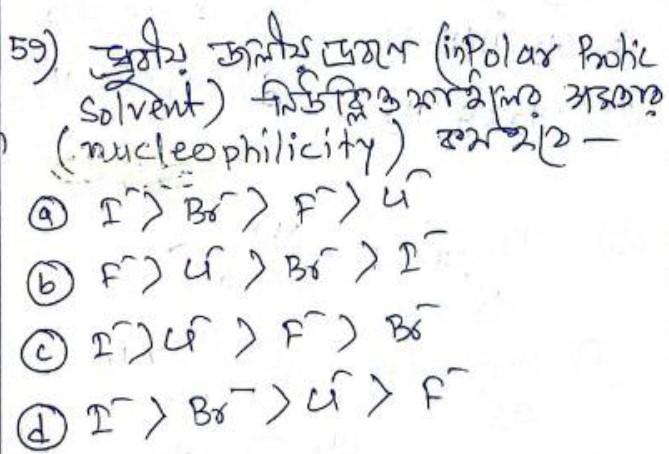 59) ধ্রুবীয় জলীয় দ্রবণে (in Polar Protic
Solvent) নিউক্লিওফাইলের ক্ষমতার
(nucleophilicity) ক্রম হবে —
ⓐ I⁻ > Br⁻ > F⁻ > Cl⁻
ⓑ F⁻ > Cl⁻ > Br⁻ > I⁻
ⓒ I⁻ > Cl⁻ > F⁻ > Br⁻
ⓓ I⁻ > Br⁻ > Cl⁻ > F⁻